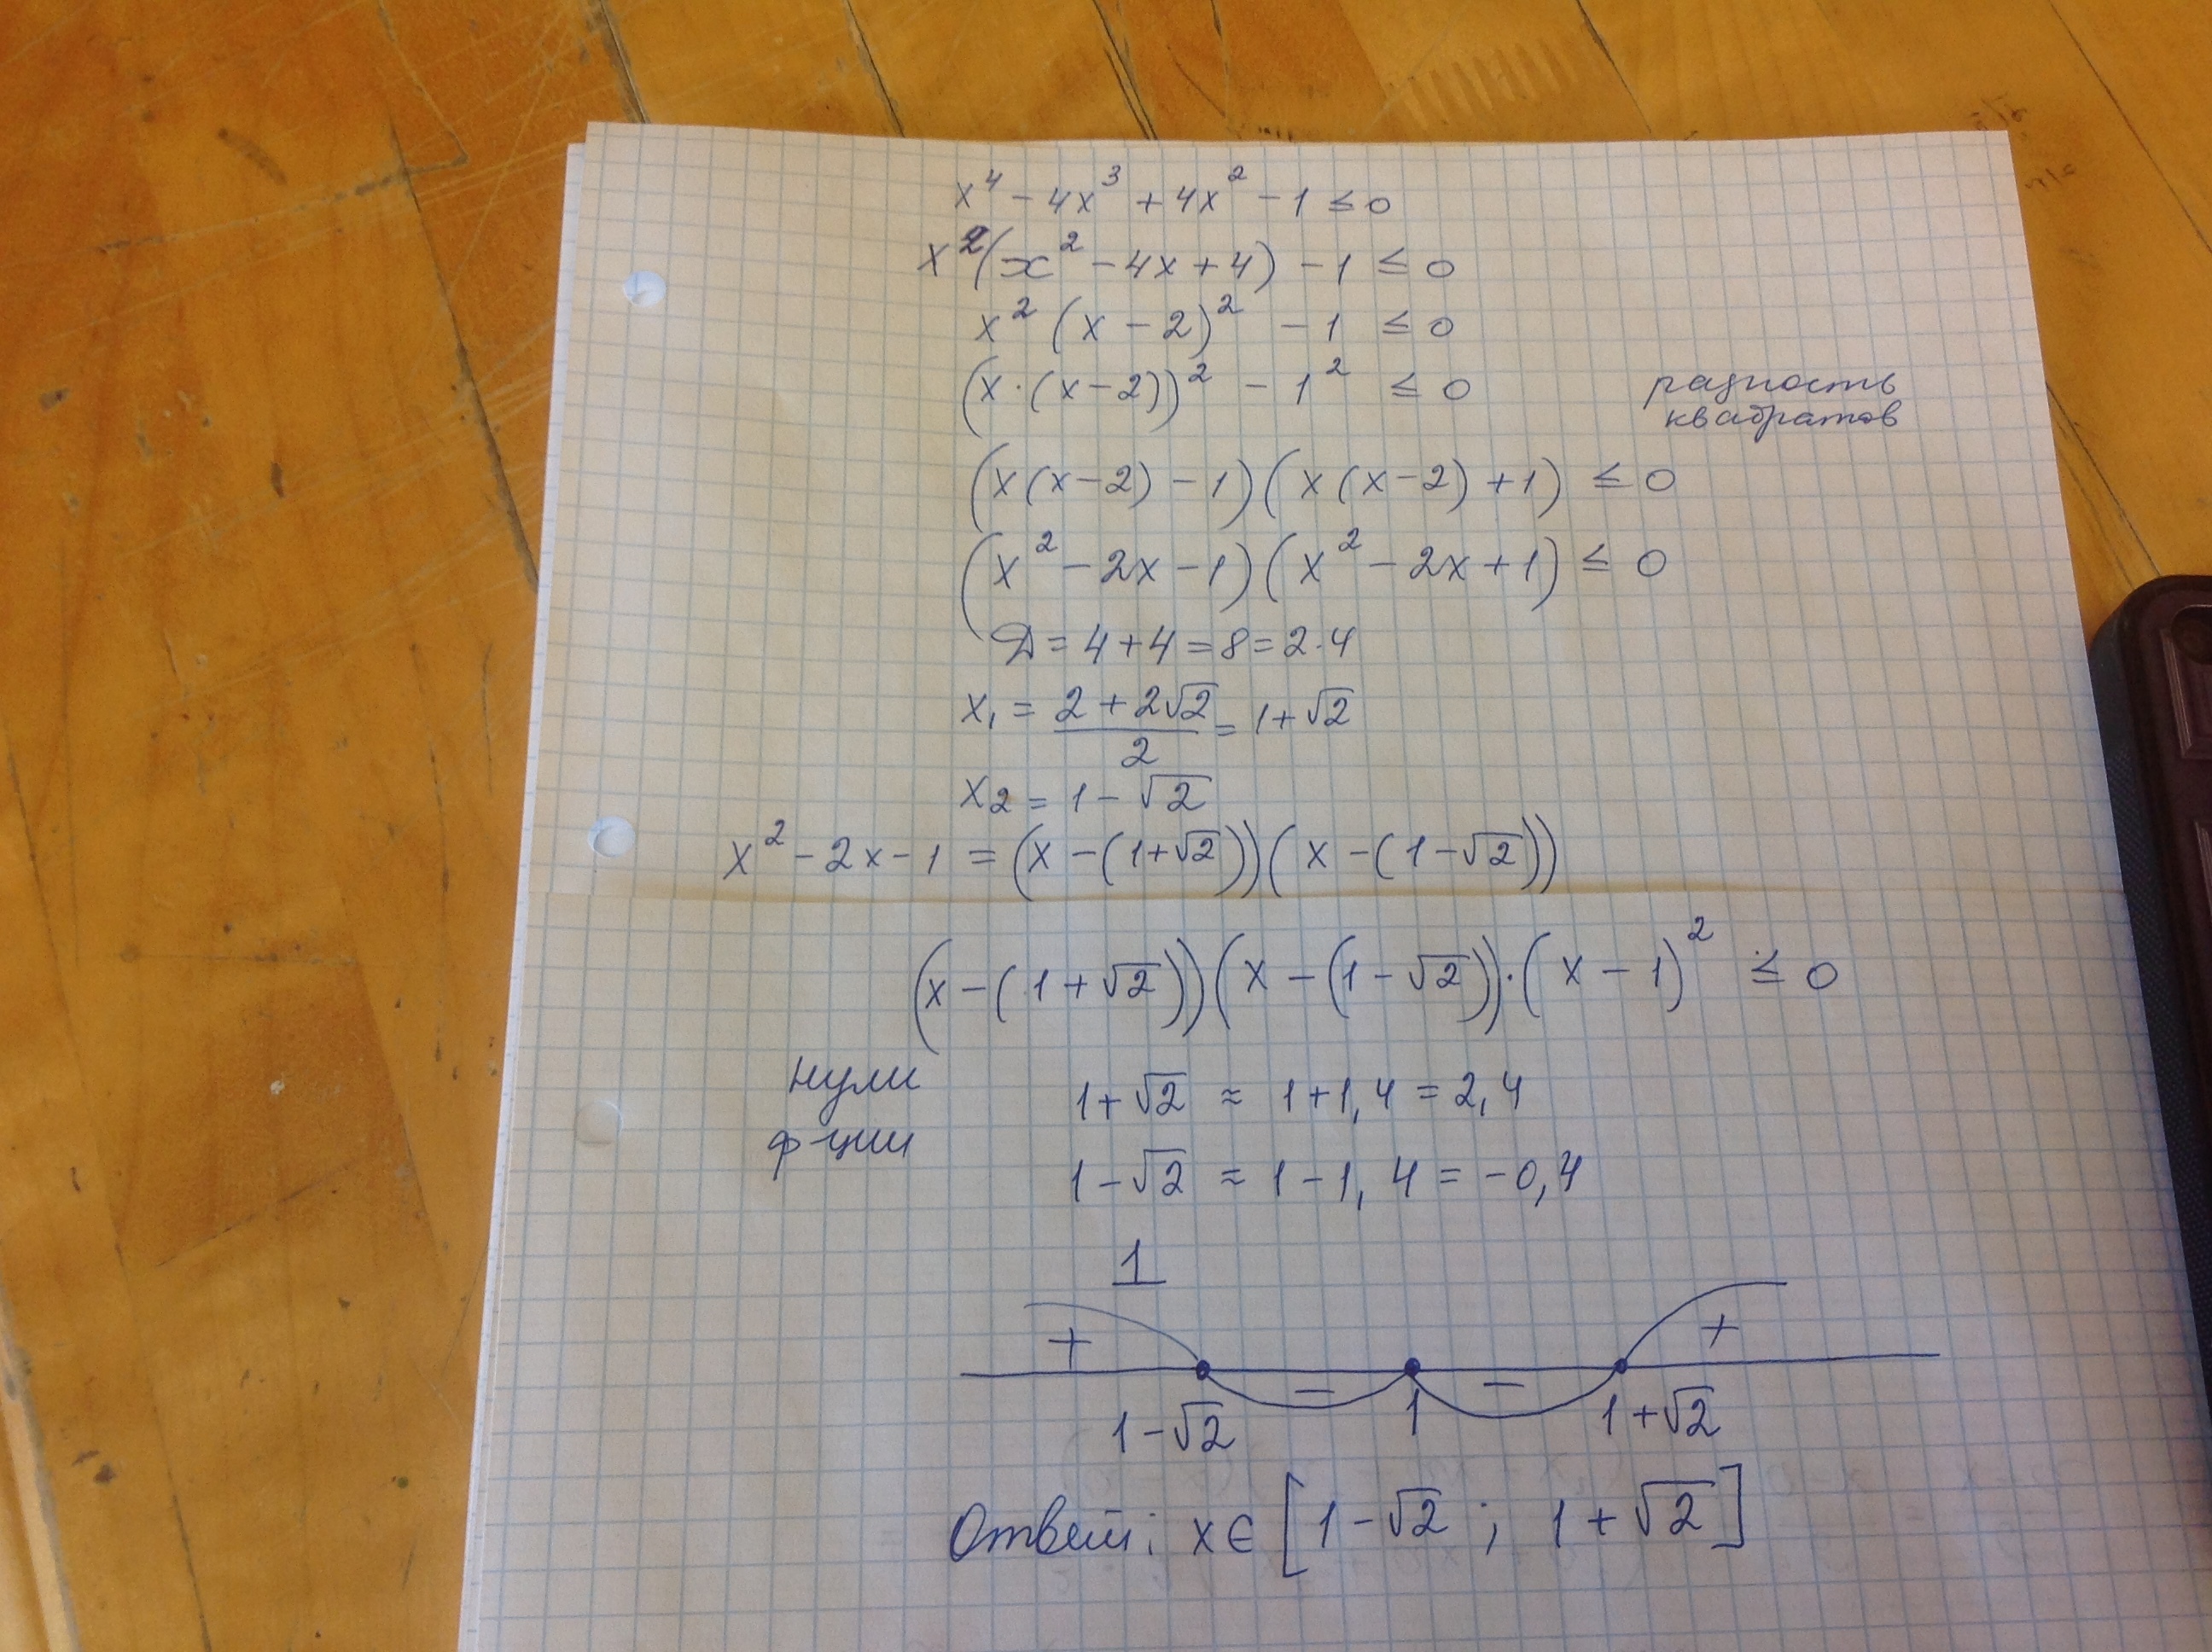 x⁴ - 4x³ + 4x² - 1 ≤ 0
x²(x² - 4x + 4) - 1 ≤ 0
x² (x - 2)² - 1 ≤ 0
(x·(x-2))² - 1² ≤ 0 разность квадратов
(x(x-2) - 1)(x(x-2) + 1) ≤ 0
(x² - 2x - 1)(x² - 2x + 1) ≤ 0
D = 4 + 4 = 8 = 2·4
x₁ = (2 + 2√2)/2 = 1 + √2
x₂ = 1 - √2
x² - 2x - 1 = (x - (1+√2))(x - (1-√2))
(x - (1+√2))(x - (1-√2))·(x - 1)² ≤ 0
нули ф-ции
1+√2 ≈ 1+1,4 = 2,4
1-√2 ≈ 1-1,4 = -0,4
1
+ - - +
1-√2 1 1+√2
Ответ: x ∈ [1-√2 ; 1+√2]